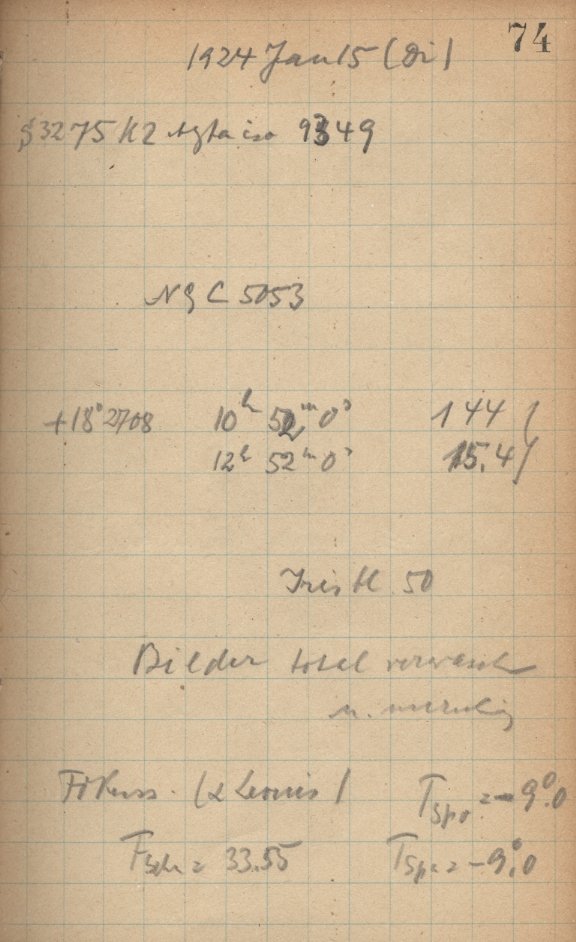 74
1924 Jan 15 (Di)
S3275 K2 Agfa iso 9349
NGC 5053
+18° 2708 10h 52m 0s 144
12h 52m 0s 15.4
Iris bl. 50
Bilder total verwasch
u. unruhig
Fokuss. (α Leonis) TSpo. = -9°.0
FSch = 33.55 TSpu = -9°.0